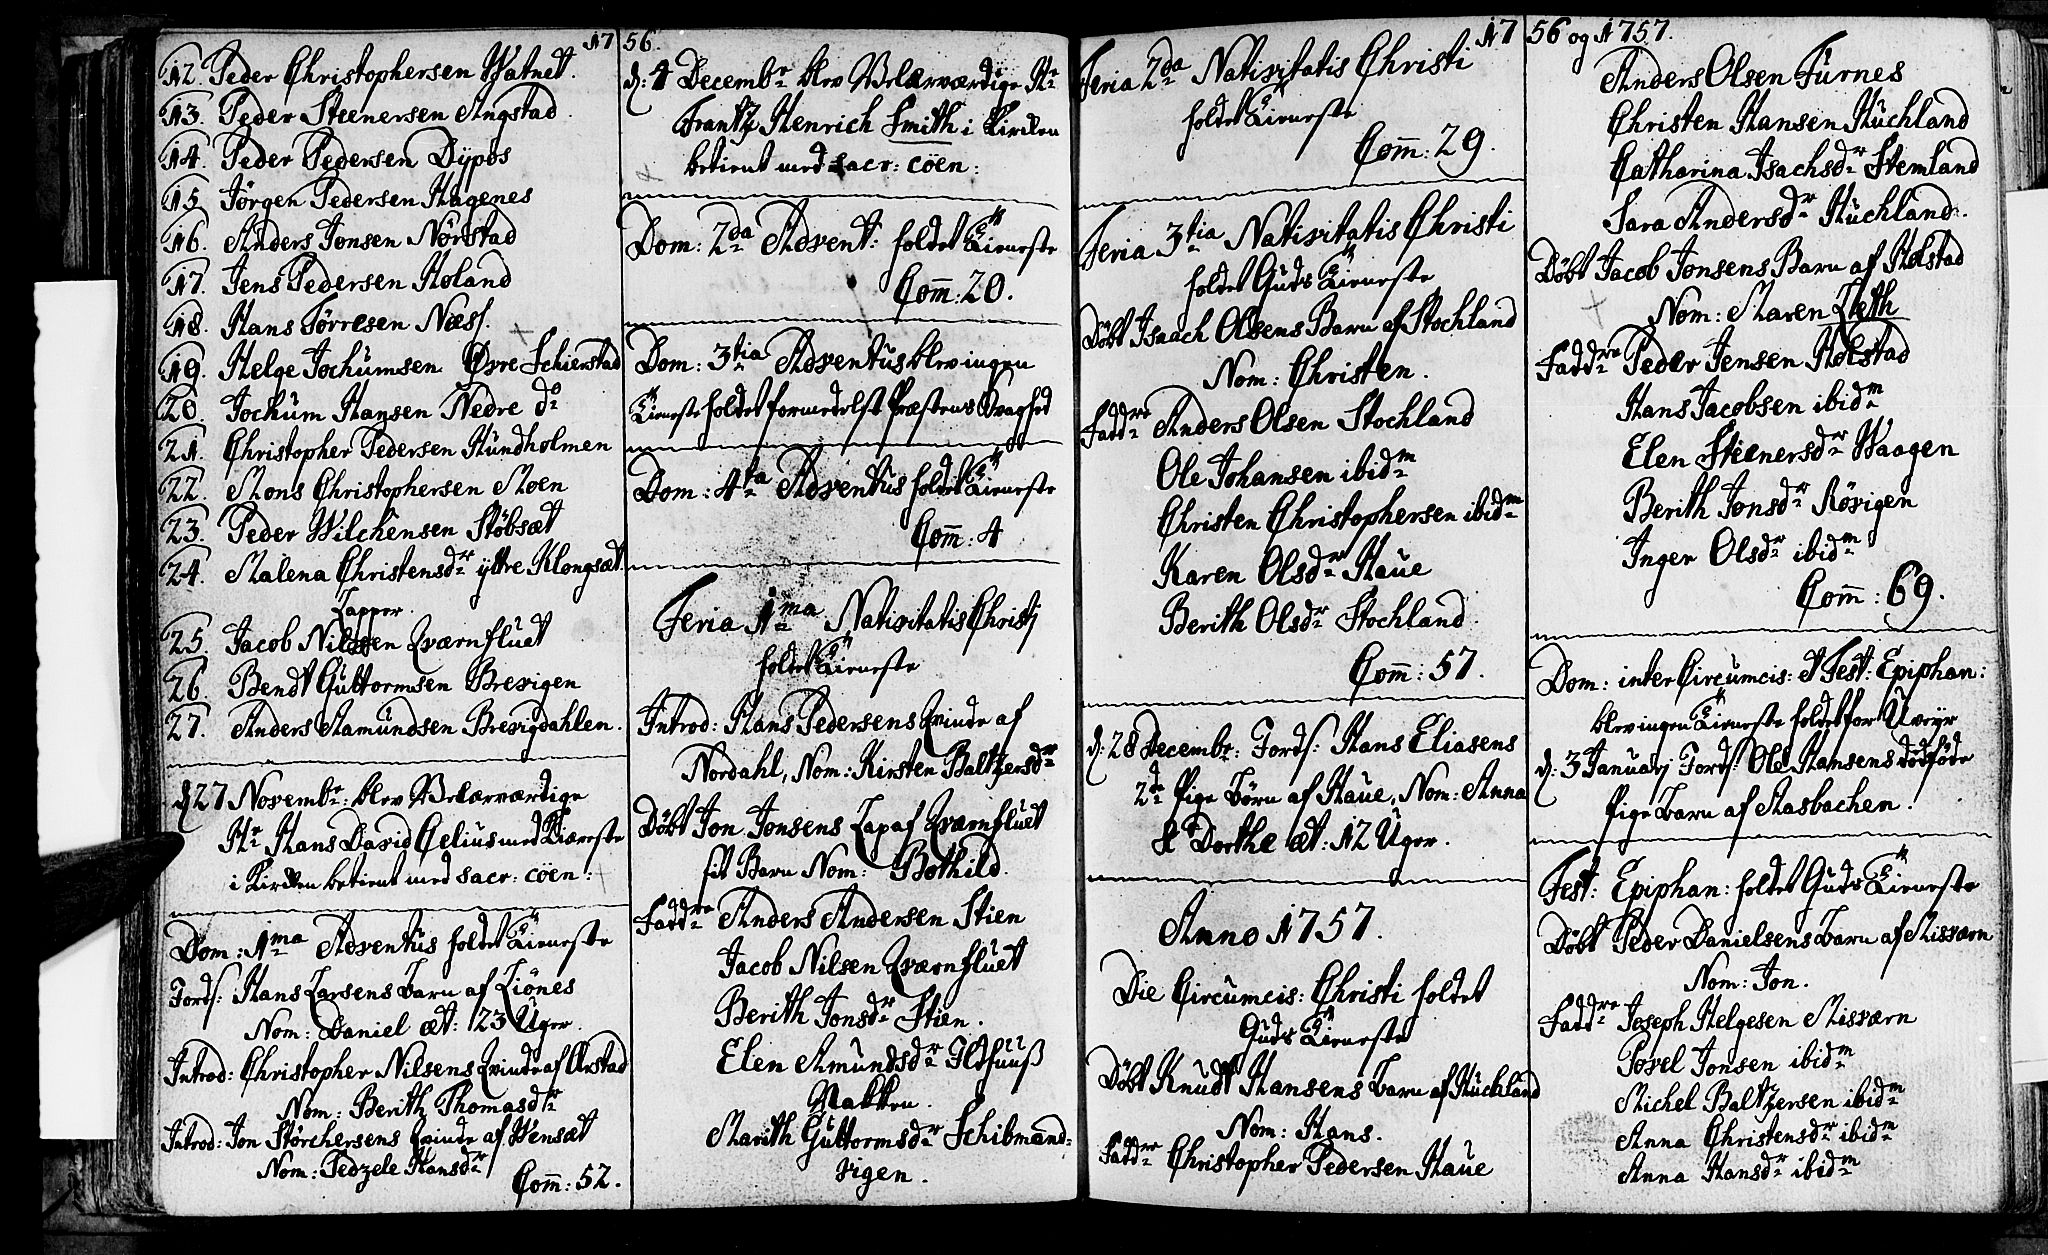 1756.
12. Peder Christophersen Watnet.
13. Peder Steenersen Angstad
14. Peder Pedersen Dypos
15. Jørgen Pedersen Hagenes
16. Anders Jonsen Nörstad
17. Jens Pedersen Høland
18. Hans Törresen Næss.
19. Helge Jochumsen Øvre Schierstad
20. Jochum Hansen Nedre do
21. Christopher Pedersen Hundholmen
22. Mons Christophersen Moen
23. Peder Wilchensen Stöbsæt
24. Malena Christensdr yttre Klongsæt
Lapper.
25. Jacob Nilssen Qværnfluet
26. Bendt Guttormsen Brevigen
27. Anders Aamundsen Brevigdahlen.
d. 27 Novembr: blev Velærværdige
Hr Hans David Celius med Kiæreste
i Kirken betient med sacr: cöen:
Dom: 1ma Adventus holdet Tieneste
Jords: Hans Larsens Barn af Liönes
Nom: Daniel æt: 23 Uger.
Introd: Christopher Nilsens Qvinde af Arstad
Nom: Berith Thomasdr
Introd: Jon Störchersens Qvinde af Wensæt
Nom: Pedzele Hansdr
Com̅: 52.
d: 4 Decembr blev Velærværdige Hr
Frantz Henrich Smith i Kirken
betient med sacr: cöen:
Dom: 2da Advent: holdet Tieneste
Com̅: 20.
Dom: 3tia Adventus blev ingen
Tieneste holdet formedelst Præstens Svaghed
Dom: 4ta Adventus holdet Tieneste
Com̅: 4
Feria 1ma Nativitatis Christj
holdet Tieneste
Introd: Hans Pedersens Qvinde af
Nordahl, Nom: Kirsten Baltzersdr
Döbt Jon Jonsens Lap af Qværnfluet
sit Barn Nom: Bothild.
Faddre Anders Andersen Stien
Jacob Nilsen Qværnfluet
Berith Jonsdr Stien.
Elen Amundsdr Ildhuuß
Nakken.
Marith Guttormsdr Schibmand-
vigen.
1756 og 1757.
Feria 2da Nativitatis Christi
holdet Tieneste
Com̅: 29.
Feria 3tia Nativitatis Christi
holdet Guds Tieneste
Döbt Isaach Olsens Barn af Stochland
Nom: Christen.
Faddre Anders Olsen Stochland
Ole Johansen ibidm
Christen Christophersen ibidm
Karen Olsdr Haue
Berith Olsdr Stochland.
Com̅: 57.
d: 28 Decembr: Jords: Hans Eliasens
2de Pige Börn af Haue, Nom: Anna
& Dorthe æt: 12 Uger.
Anno 1757.
Die Circumcis: Christi holdet
Guds Tieneste
Döbt Knudt Hansens Barn af Huchland
Nom: Hans.
Faddre Christopher Pedersen Haue
Anders Olsen Furnes
Christen Hansen Huchland
Catharina Isachsdr Stemland
Sara Andersdr Huchland.
Döbt Jacob Jonsens Barn af Holstad
Nom: Maren Zleth
Faddre Peder Jensen Holstad
Hans Jacobsen ibidm
Elen Steenersdr Waagen
Berith Jonsdr Rövigen
Inger Olsdr ibidm
Com̅: 69.
Dom: inter Circumcis: et Fest: Epiphan:
blev ingen Tieneste holdet for Uveyr
d: 3 Januarj Jords: Ole Hansens dödföde
Pige Barn af Aasbachen.
Fest: Epiphan: holdet Guds Tieneste
Döbt Peder Danielsens Barn af Misværn
Nom: Jon.
Faddre Joseph Helgesen Misværn
Povel Jonsen ibidm
Michel Baltzersen ibidm
Anna Christensdr ibidm
Anna Hansdr ibidm